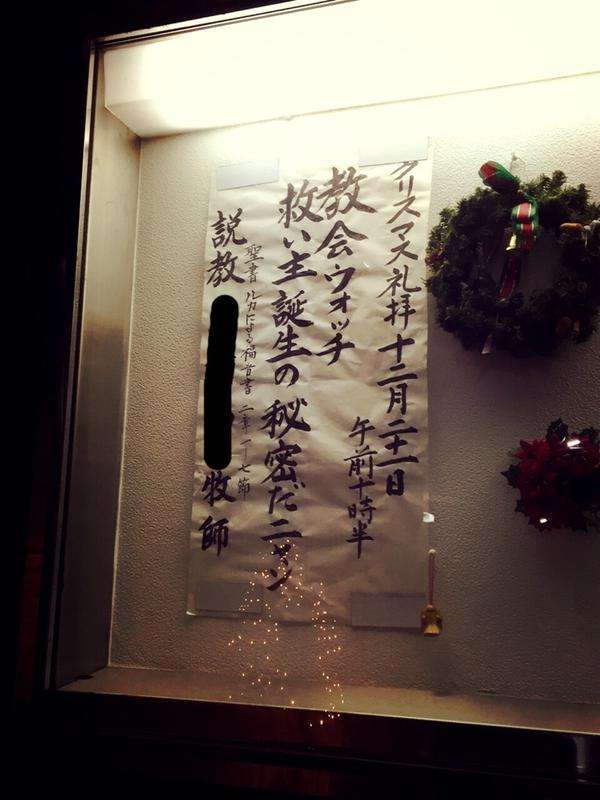 クリスマス礼拝 十二月二十一日
午前十時半
教会ウォッチ
救い主誕生の秘密だニャン
聖書 ルカによる福音書 二章 一〜七節
説教
牧師